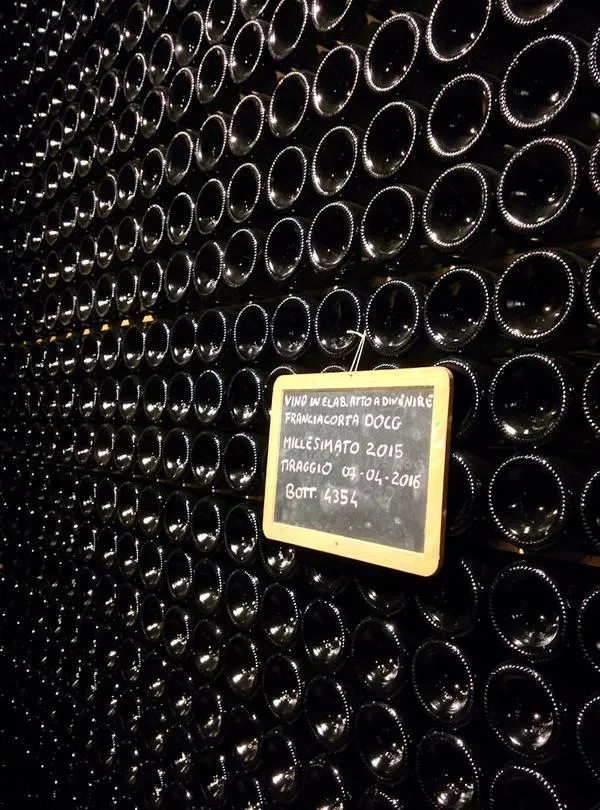 VINO IN ELAB. ATTO A DIVENIRE
FRANCIACORTA DOCG
MILLESIMATO 2015
TIRAGGIO 07-04-2016
BOTT. 4354